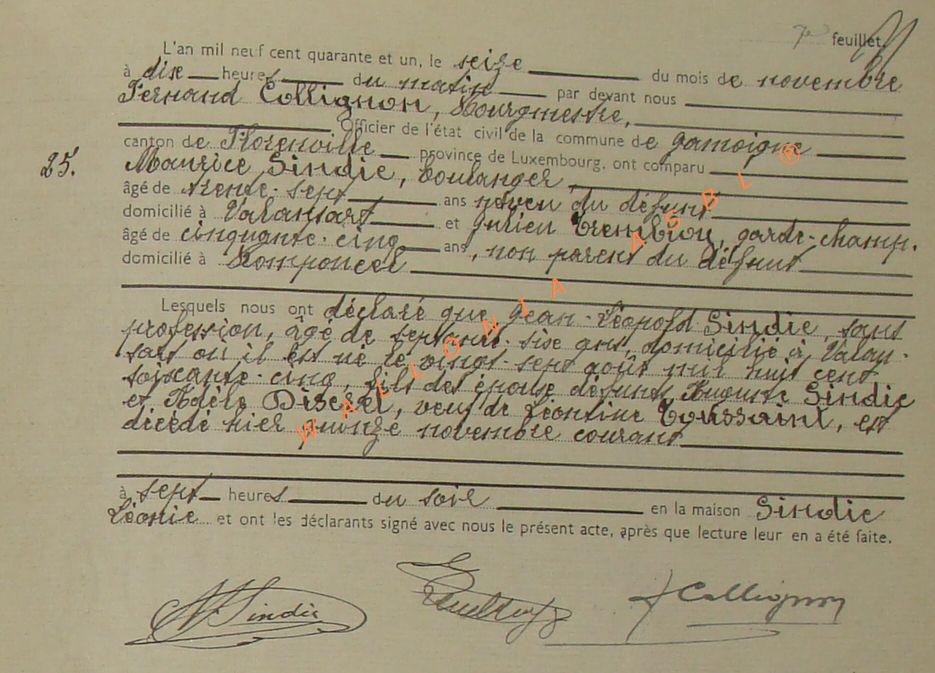 7e feuillet
L'an mil neuf cent quarante et un, le seize du mois de novembre
à dix heures du matin par devant nous
Fernand Collignon, Bourgmestre,
Officier de l'état civil de la commune de Jamoigne
canton de Florenville province de Luxembourg, ont comparu
25.
Maurice Sindic, boulanger,
âgé de trente-sept ans neveu du défunt
domicilié à Valansart et Julien garde-champ.
âgé de cinquante-cinq ans, non parent du défunt
domicilié à Romponcel
Lesquels nous ont déclaré que Jean-Léopold Sindic, sans
profession, âgé de septante-six ans, domicilié à Valan-
sart où il est né le vingt-sept août mil huit cent
soixante-cinq, fils des époux défunts Auguste Sindic
et Adèle veuf de Léontine Toussaint, est
décédé hier quinze novembre courant
à sept heures du soir en la maison Sindic
Léonie et ont les déclarants signé avec nous le présent acte, après que lecture leur en a été faite.
Sindic
J Collignon
WALLONIA ASBL ®